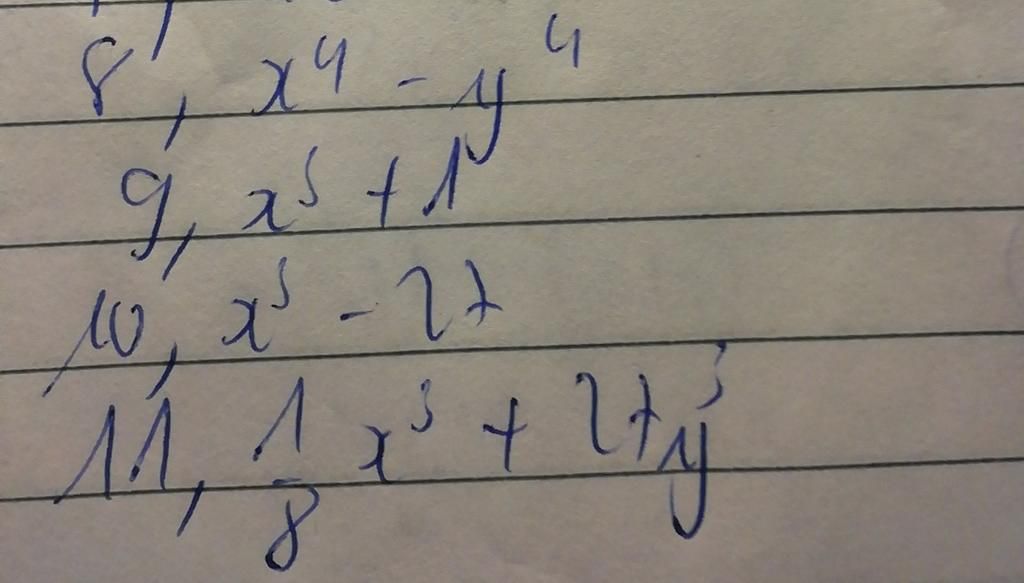 8, x⁴ - y⁴
9, x³ + 1
10, x³ - 27
11, 1/8 x³ + 27y³